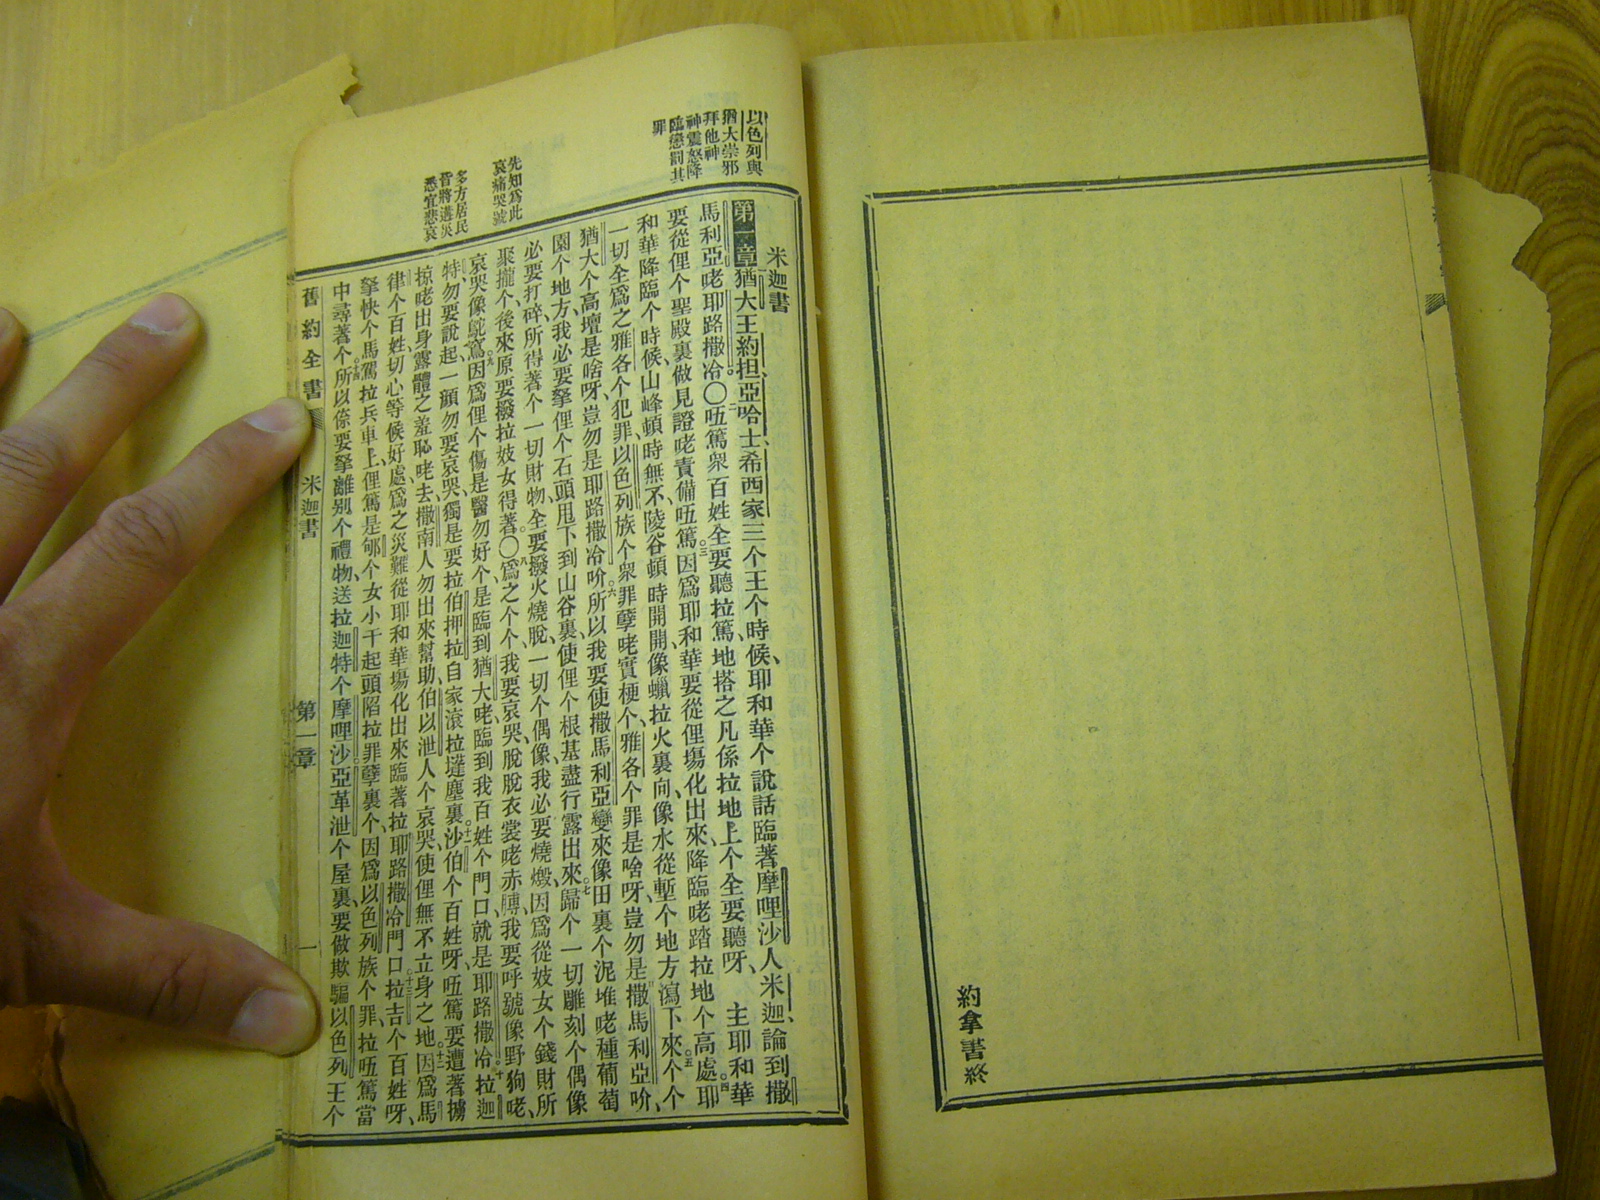 約拿書終
以色列與
猶大崇邪
拜他神
神震怒降
臨懲罰其
罪
先知爲此
哀痛哭號
多方居民
皆將遘災
悉宜悲哀
米迦書
第一章猶大王約担、亞哈士、希西家三个王个時候、耶和華个說話臨著摩哩沙人米迦、論到撒
馬利亞咾耶路撒冷。〇二呍篤衆百姓全要聽拉篤、地搭之凡係拉地上个全要聽呀、主耶和華
要從俚个聖殿裏做見證咾責備呍篤三因爲耶和華要從俚塲化出來、降臨咾踏拉地个高處四耶
和華降臨个時候、山峰頓時無不、陵谷頓時開開像蠟拉火裏向、像水從塹个地方瀉下來个五个
一切全爲之雅各个犯罪、以色列族个衆罪孽咾實梗个、雅各个罪是啥呀、豈勿是撒馬利亞吤、
猶大个高壇是啥呀、豈勿是耶路撒冷吤六所以我要使撒馬利亞變來像田裏个泥堆咾種葡萄
園个地方、我必要拏俚个石頭甩下到山谷裏、使俚个根基盡行露出來七歸个一切雕刻个偶像
必要打碎、所得著个一切財物、全要撥火燒脫、一切个偶像、我必要燒燬、因爲從妓女个錢財所
聚攏个、後來原要撥拉妓女得著。〇八爲之个个、我要哀哭、脫脫衣裳咾赤膊、我要呼號像野狗咾、
哀哭像鴕鳥九因爲俚个傷是醫勿好个、是臨到猶大咾、臨到我百姓个門口、就是耶路撒冷十拉迦
特、勿要說起、一顔勿要哀哭、獨是要拉伯押拉自家滾拉墶塵裏十一沙伯个百姓呀、呍篤要遭著擄
掠咾出身露體之羞恥咾去、撒南人勿出來幫助、伯以泄人个哀哭、使俚無不立身之地十二因爲馬
律个百姓、切心等候好處、爲之災難從耶和華塲化出來臨著拉耶路撒冷門口十三拉吉个百姓呀、
拏快个馬駕拉兵車上、俚篤是郇个女小干起頭陷拉罪孽裏个、因爲以色列族个罪、拉呍篤當
中尋著个十四所以倷要拏離別个禮物、送拉迦特个摩哩沙亞革泄个屋裏、要做欺騙以色列王个
舊約全書 米迦書 第一章 一